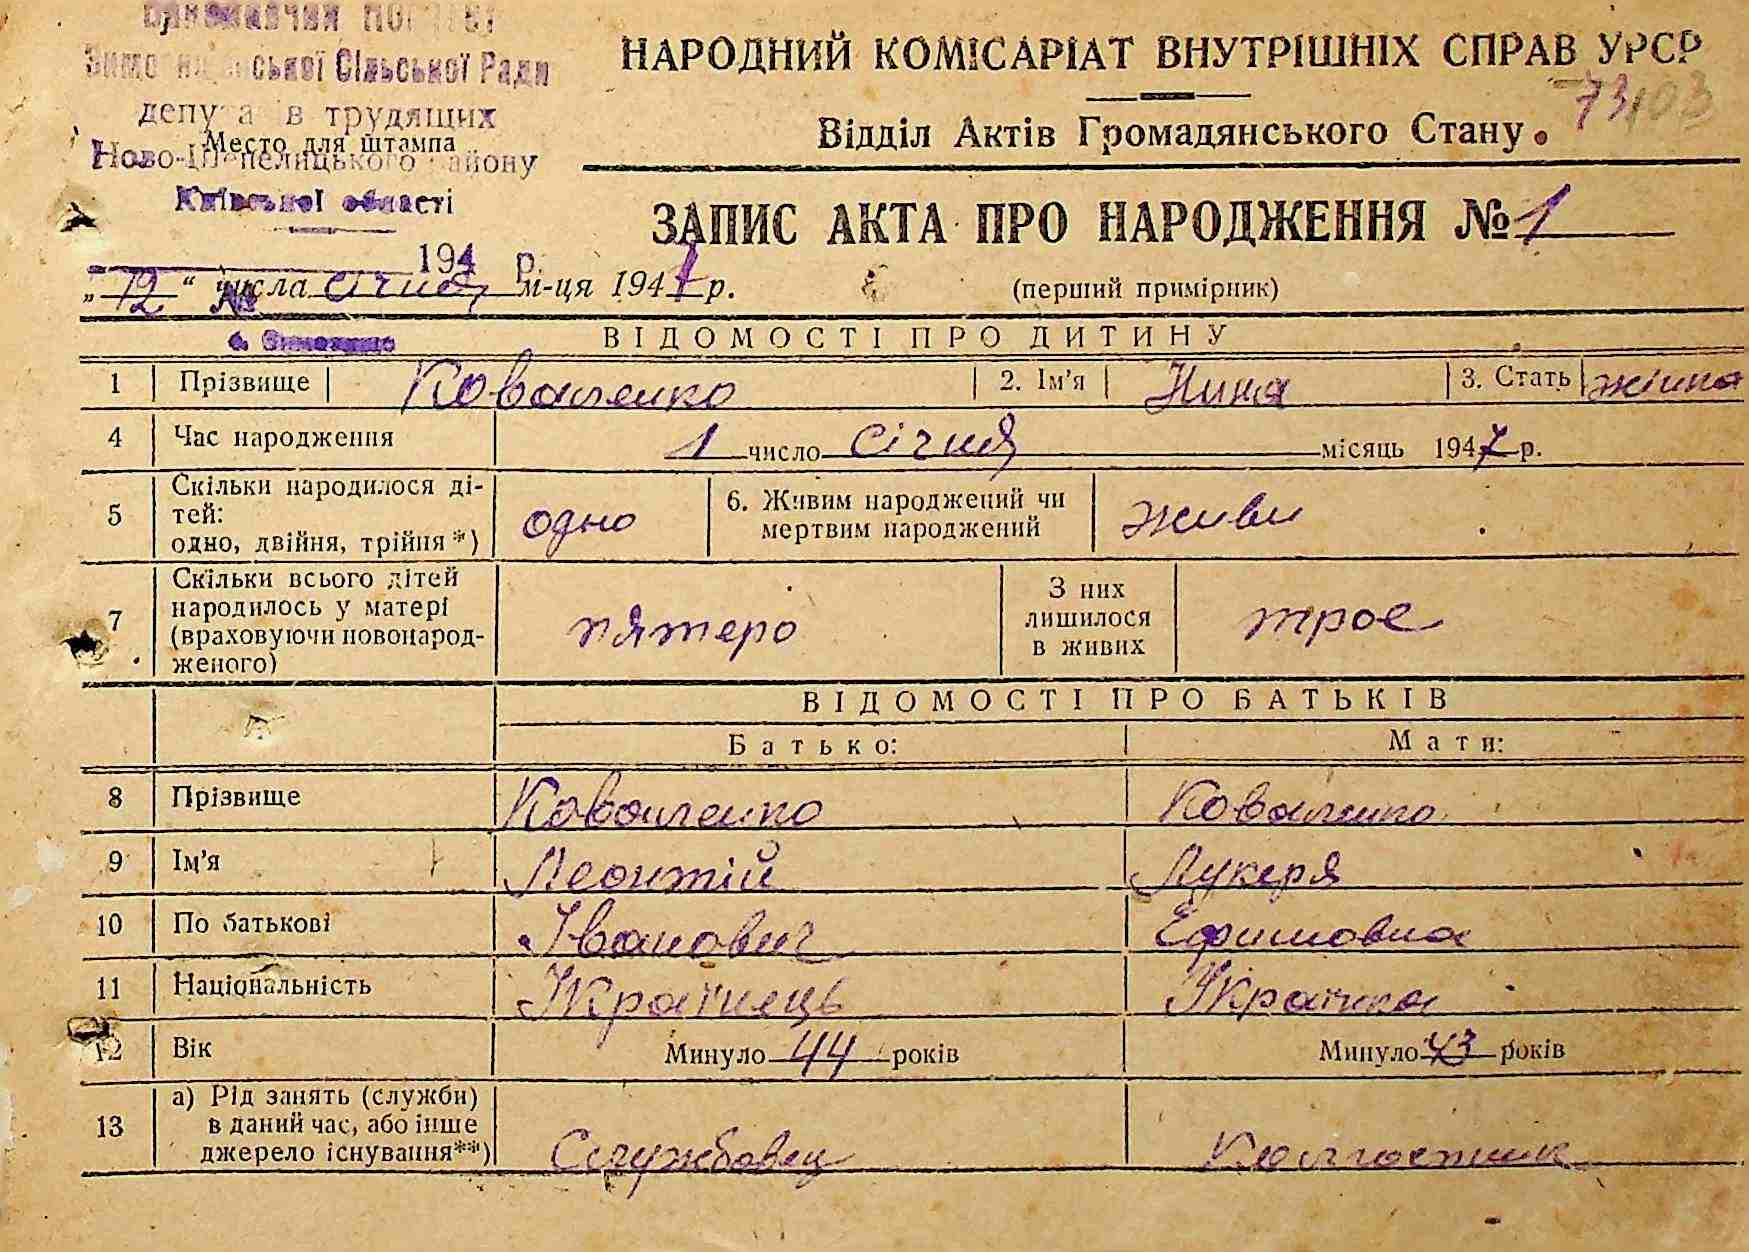 Сільської Ради
трудящих
Место для штампа
Київської області
194 р.
№
НАРОДНИЙ КОМІСАРІАТ ВНУТРІШНІХ СПРАВ УРСР
73
103
Відділ Актів Громадянського Стану.
ЗАПИС АКТА ПРО НАРОДЖЕННЯ № 1
„12“ числа січня м-ця 1947 р.
(перший примірник)
ВІДОМОСТІ ПРО ДИТИНУ
1 Прізвище Коваленко 2. Ім'я Нина 3. Стать жінка
4 Час народження 1 число січня місяць 1947 р.
5 Скільки народилося ді-
тей:
одно, двійня, трійня*) одно 6. Живим народжений чи
мертвим народжений живи
7 Скільки всього дітей
народилось у матері
(враховуючи новонарод-
женого) пятеро З них
лишилося
в живих трое
ВІДОМОСТІ ПРО БАТЬКІВ
Батько: Мати:
8 Прізвище Коваленко Коваленко
9 Ім'я Леонтій Лукеря
10 По батькові Іванович Ефимовна
11 Національність Украінець Украінка
12 Вік Минуло 44 років Минуло 43 років
13 а) Рід занять (служби)
в даний час, або інше
джерело існування**) Службовец Колгоспник